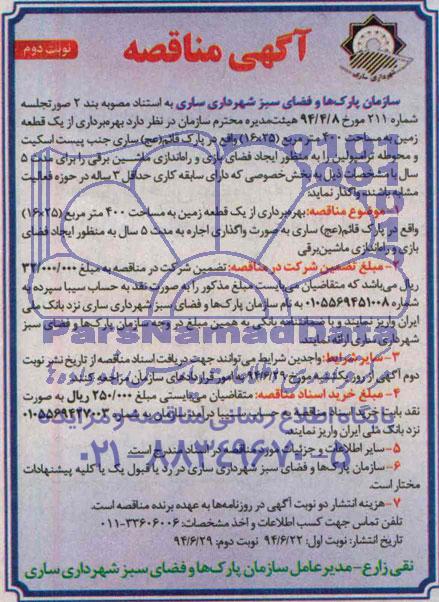 آگهی مناقصه
نوبت دوم
سازمان پارک‌ها و فضای سبز شهرداری ساری به استناد مصوبه بند ۲ صورتجلسه
شماره ۲۱۱ مورخ ۹۴/۴/۸ هیئت‌مدیره محترم سازمان در نظر دارد بهره‌برداری از یک قطعه
زمین به مساحت ۴۰۰ متر مربع (۲۵×۱۶) واقع در پارک قائم(عج) ساری جنب پیست اسکیت
و محوطه ترامپولین را به منظور ایجاد فضای بازی و راه‌اندازی ماشین برقی را برای مدت ۵
سال با مشخصات ذیل به بخش خصوصی که دارای سابقه کاری حداقل ۳ ساله در حوزه فعالیت
مشابه باشند، واگذار نماید:
۱- موضوع مناقصه: بهره‌برداری از یک قطعه زمین به مساحت ۴۰۰ متر مربع (۲۵×۱۶)
واقع در پارک قائم(عج) ساری به صورت واگذاری اجاره به مدت ۵ سال به منظور ایجاد فضای
بازی و راه‌اندازی ماشین‌برقی
۲- مبلغ تضمین شرکت در مناقصه: تضمین شرکت در مناقصه به مبلغ ۳۲/۰۰۰/۰۰۰
ریال می‌باشد که متقاضیان می‌بایست مبلغ مذکور را به صورت نقد به حساب سیبا سپرده به
شماره ۰۱۰۵۵۶۹۴۵۱۰۰۸ به نام سازمان پارک‌ها و فضای سبز شهرداری ساری نزد بانک ملی
ایران واریز نمایند و یا ضمانتنامه بانکی به همین مبلغ در وجه سازمان پارک‌ها و فضای سبز
شهرداری ساری ارائه نمایند.
۳- سایر شرایط: واجدین شرایط می‌توانند جهت دریافت اسناد مناقصه از تاریخ نشر نوبت
دوم آگهی از روز یکشنبه مورخ ۹۴/۶/۲۹ به امور قراردادهای سازمان مراجعه کنند.
۴- مبلغ خرید اسناد مناقصه: متقاضیان می‌بایستی مبلغ ۲۵۰/۰۰۰ ریال به صورت
نقد بابت خرید اسناد مناقصه به حساب سیبا درآمد سازمان به شماره ۰۱۰۵۵۶۹۴۴۷۰۰۳
نزد بانک ملی ایران واریز نمایند.
۵- سایر اطلاعات و جزئیات مورد مناقصه در اسناد مندرج است.
۶- سازمان پارک‌ها و فضای سبز شهرداری ساری در رد یا قبول یک یا کلیه پیشنهادات
مختار است.
۷- هزینه انتشار دو نوبت آگهی در روزنامه‌ها به عهده برنده مناقصه است.
تلفن تماس جهت کسب اطلاعات و اخذ مشخصات: ۳۳۶۰۶۰۰۶-۰۱۱
تاریخ انتشار: نوبت اول: ۹۴/۶/۲۲ نوبت دوم: ۹۴/۶/۲۹
نقی زارع - مدیرعامل سازمان پارک‌ها و فضای سبز شهرداری ساری
ParsNamadData
پایگاه اطلاع رسانی مناقصه و مزایده
۰۲۱-۸۸۳۴۹۶۷۰-۵